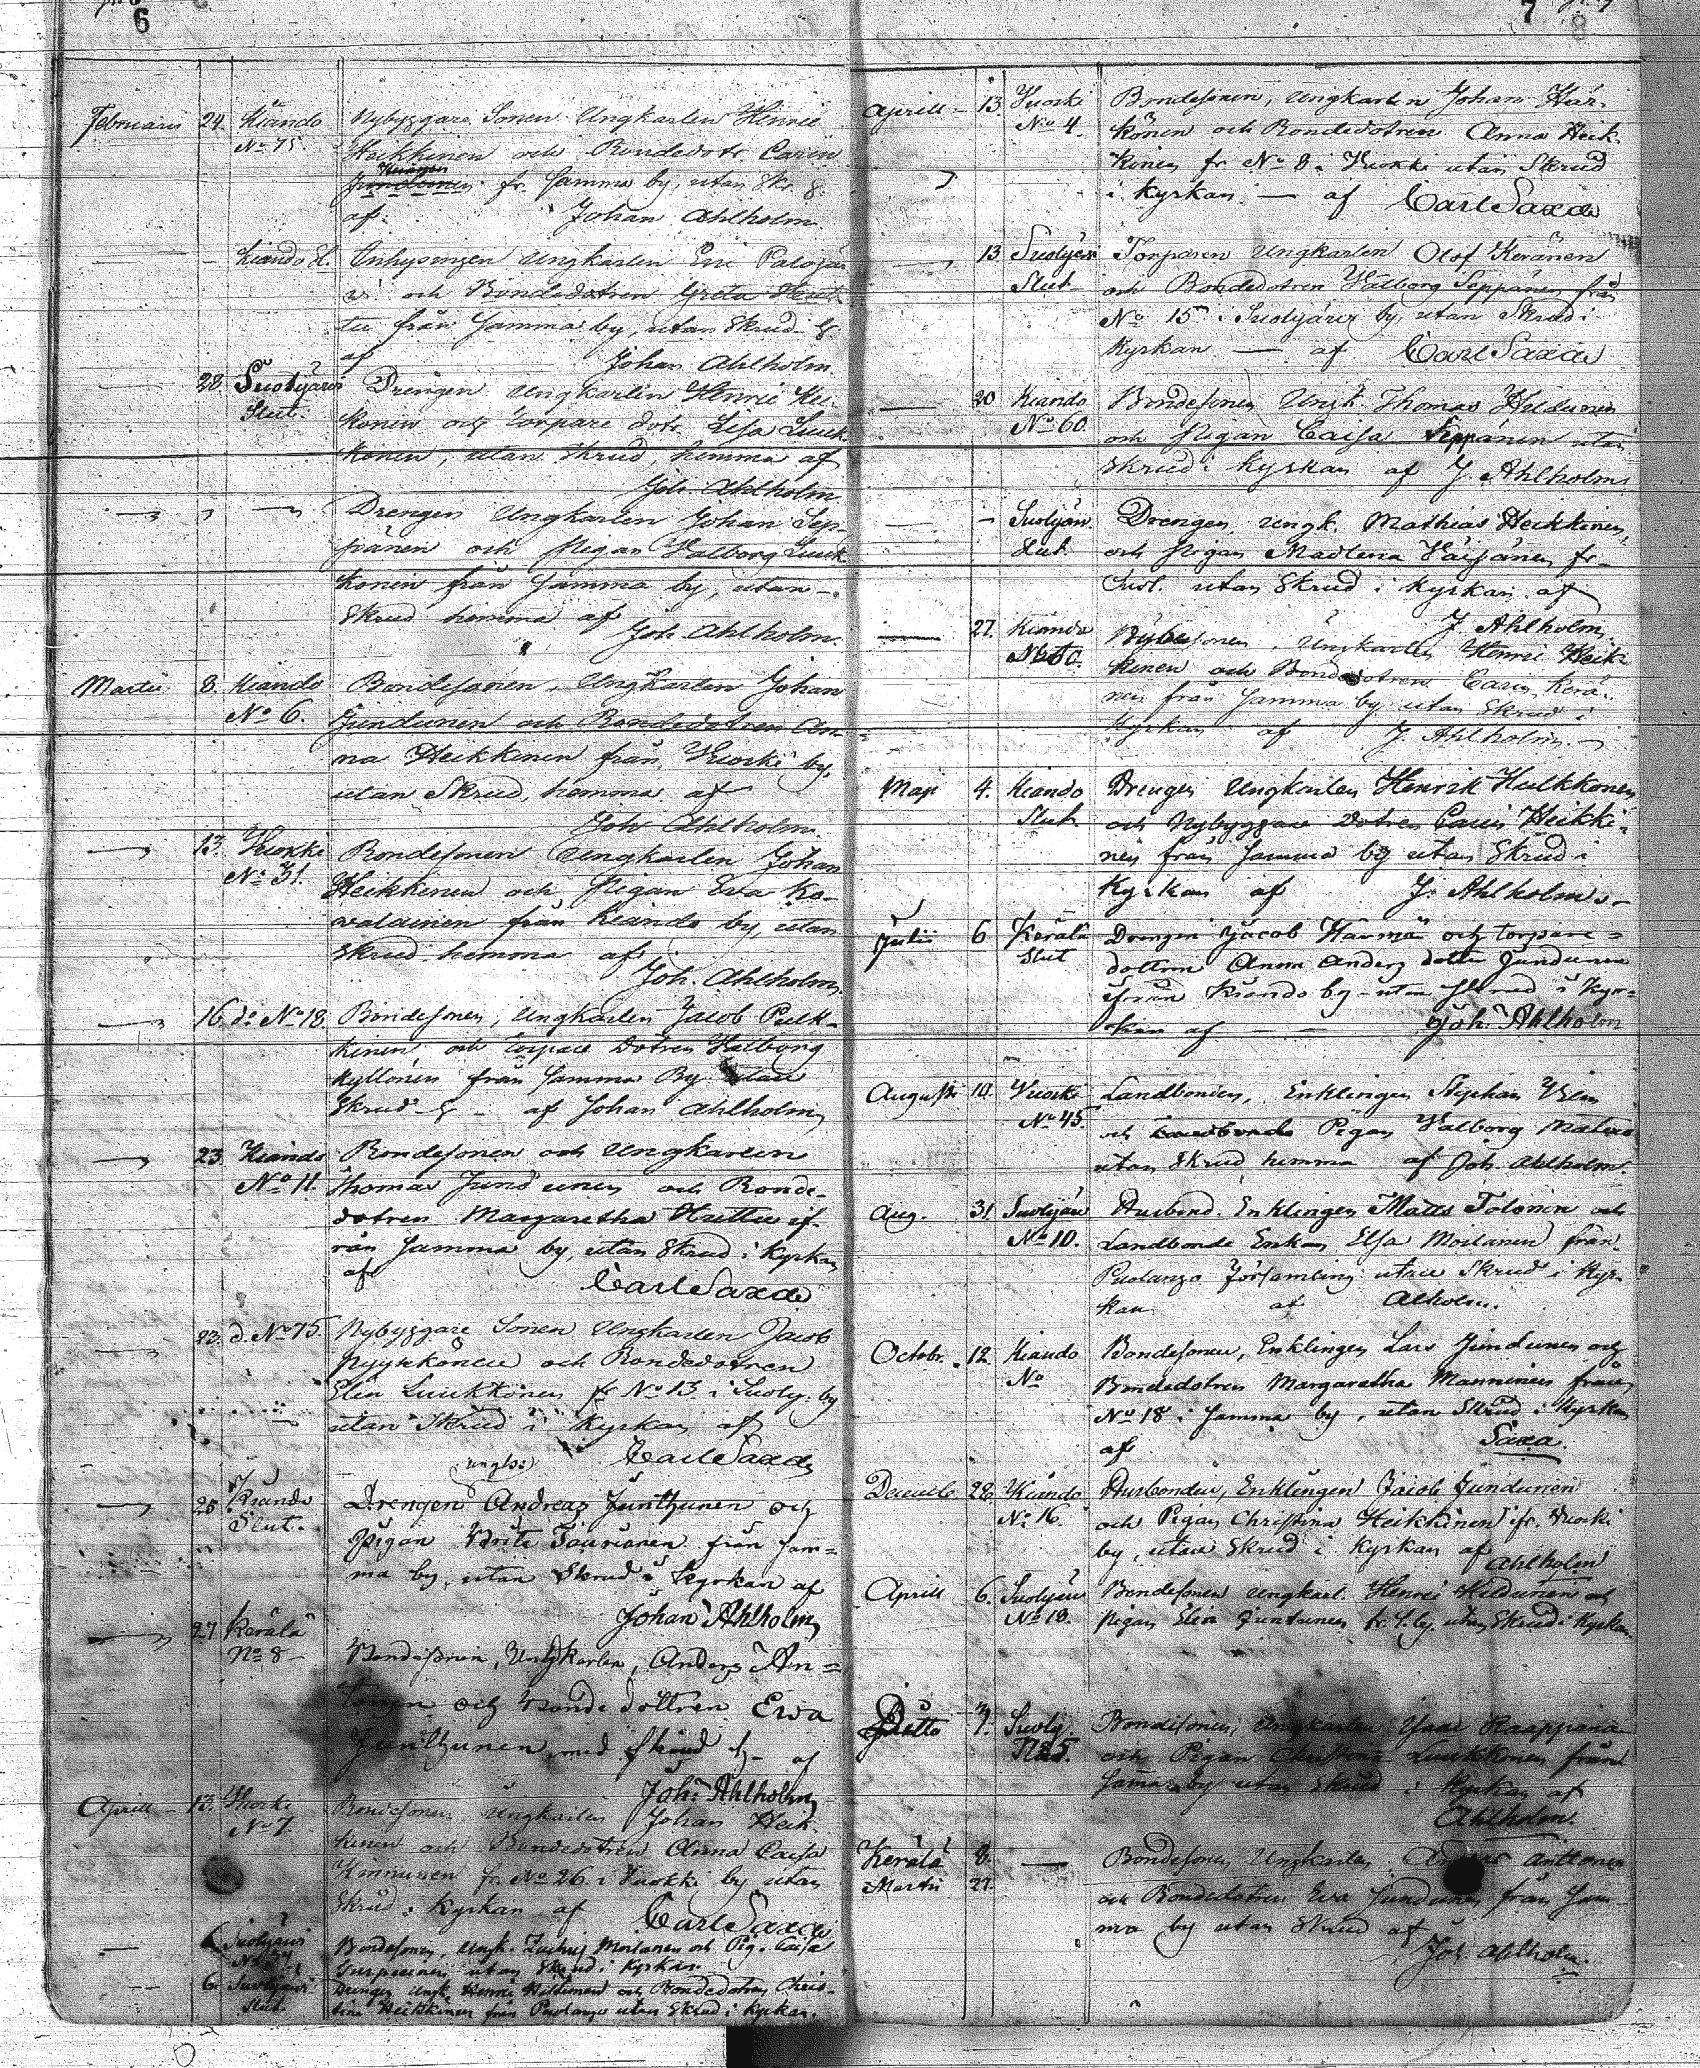 6
Februarii 24. Kiando Nybyggare Sonen Ungkarlen Henric
No 75. Heikkinen och Bondedotr. Carin
fr. samma by, utan Skr. &
af. Johan Ahlholm.
Kiando Sl. Inhysingen Ungkarlen Eric Palojär
vi och Bondedotren Greta Hut
tu från samma by, utan Skrud &
af Johan Ahlholm
28. Suolijärvi Drengen Ungkarlen Henric
Slut. och torpare dotr. Lisa Luuk
konen, utan Skrud, hemma af
Joh. Ahlholm
Drengen Ungkarlen Johan Sep
pänen och Pigan Walborg Luuk
konen från samma by, utan
Skrud hemma af
Joh. Ahlholm.
Martii 8. Kiando Bondesonen, Ungkarlen Johan
No 6. Jundunen och Bondedotren An
na Heikkinen från Wuocki by,
utan Skrud, hemma af
Joh Ahlholm.
13. Wuokki Bondesonen Ungkarlen Johan
No 31. Heikkinen och Pigan Ewa Ko
walainen från Kiando by, utan
Skrud hemma af
Joh. Ahlholm.
16. do No 18. Bondesonen, Ungkarlen Jacob Pulk
kinen, och torpare dotren Walborg
Kyllönen från samma By utan
Skrud & af Johan Ahlholm
23. Kiando Bondesonen och Ungkarlen
No 11. Thomas Jundunen och Bonde
dotren Margaretha Huttu if
rån samma by, utan Skrud i Kyrkan
af Carl Saxa
23. d. No 75. Nybyggare Sonen Ungkarlen Jacob
Pyykkönen och Bondedotren
Elin Luukkonen fr No 13 i Suoly. by
utan Skrud i Kyrkan af
Carl Saxa
25 Kiando Drengen Andreas Junthunen och
Slut. Pigan Brita Tauriainen från sam=
ma by, utan Skrud i Kyrkan af
Johan Ahlholm
27 Kerälä Bondesonen, Ungkarlen, Anders An=
No 8 tonen och Bonde dottren Ewa
Junthunen, med skrud &- af
Joh: Ahlholm
Aprill 13. Wuoki Bondesonen Ungkarlen Johan Heik
No 7. kinen och Bondedotren Anna Caisa
Kinnunen fr. No 26. i Wuokki by utan
Skrud i Kyrkan af Carl Saxa
6 Suolijärvi Bondesonen, Ungk. Moilanen och Pig. Caisa
utan Skrud i Kyrkan.
6. Suolijärvi Drengen Ungk. Henric och Bondedotren Chris
Slut. tina Heikkinen från Puolango utan Skrud i Kyrkan.
7
Aprill 13. Wuoki Bondesonen, Ungkarlen Johan Här
No 4. könen och Bondedotren Anna Heik
kinen fr. No 8 i Wuokki utan Skrud
i Kyrkan. af Carl Saxa
13 Suolijärvi Torparen Ungkarlen Olof Keränen
Slut och Bondedotren Walborg Seppänen från
No 15 i Suolijärvi by, utan Skrud i
Kyrkan af Carl Saxa
20 Kiando Bondesonen Ungk. Thomas Heldunen
No 60. och Pigan Caisa Seppänen utan
Skrud i Kyrkan af J. Ahlholm
Suolijärv. Drengen Ungk. Mathias Heikkinen,
Slut. och Pigan Madlena Wäisänen fr
Suol. utan Skrud i Kyrkan af
J. Ahlholm.
27. Kiando Ungkarlen Henric Heik
kinen och Bondedotren Carin Kerä
nen från samma by utan Skrud i
Kyrkan af J Ahlholm.
Maji 4. Kiando Drengen Ungkarlen Henrik Hulkkonen
Slut. och Nybyggare dotren Carin Heikki
nen från samma by utan Skrud i
Kyrkan af J. Ahlholm.
Julii 6 Kerälä Drengen Jacob Härmä och torpare=
Slut dottren Anna Anders dotter Jundunen
ifrån Kiando by utan skrud i Kyr=
kan af Joh: Ahlholm
Augusti 10. Wuokki Landbonden, Enklingen Stephan
No 45. och Pigan Walborg
utan Skrud hemma af Joh. Ahlholm.
Aug. 31. Suolijärv Husbond. Enklingen Matts Tolonen och
No 10. Landbonde Enkan Elsa Moilanen från
Puolango församling utan Skrud i Kyr
kan af Alholm.
Octobr. 12. Kiando Bondesonen, Enklingen Lars Jundunen och
No Bondedotren Margaretha Manninen från
No 18 i samma by, utan Skrud i Kyrkan
af Saxa.
Decemb. 28. Kiando Husbonden, Enklingen Jacob Jundunen
No 16. och Pigan Christina Heikkinen ifr. Wuocki
by, utan Skrud i Kyrkan af
Ahlholm
Aprill 6. Suolijärv Bondesonen Ungkarl. Henric Heldunen och
No 10. Pigan Elin Juntunen fr. S. by. utan Skrud i Kyrkan.
Ditto 7. Suoly. Bondesonen, Ungkarlen Isac Raappana
och Pigan Christina Luukkonen från
samma by utan Skrud i Kyrkan af
Ahlholm.
Kerälä 8. Bondesonen Ungkarlen Anders Anttonen
Martii 27. och Bondedotren Eva Jundunen från sam
ma by utan Skrud af
Joh Ahlholm.